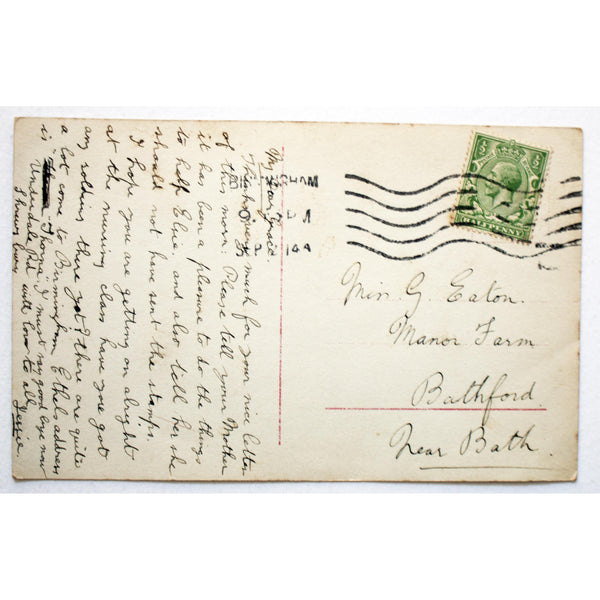 My Dear
Thanks very much for your nice letter
of this morn: Please tell your Mother
it has been a pleasure to do the things
to help Elsie. and also tell her she
should not have sent the stamps.
I hope you are getting on alright
at the nursing class have you got
any soldiers there yet? there are quite
a lot come to Birmingham Ethel address
is I must say good bye now
Underdale Rd. with love to all
Yours
Jessie.
BIRMINGHAM
PM
14
HALFPENNY
Miss G. Eaton.
Manor Farm
Bathford.
Near Bath.